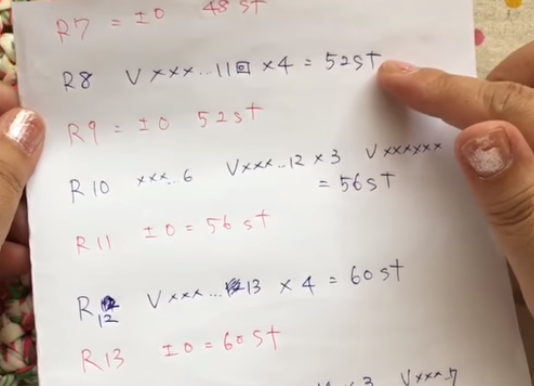 R7 = ±0 48st
R8 V×××...11回 ×4 = 52st
R9 = ±0 52st
R10 ×××...6 V×××...12 × 3 V××××××
= 56st
R11 ±0 = 56st
R12 V×××...13 × 4 = 60st
R13 ±0 = 60st
V×××-7